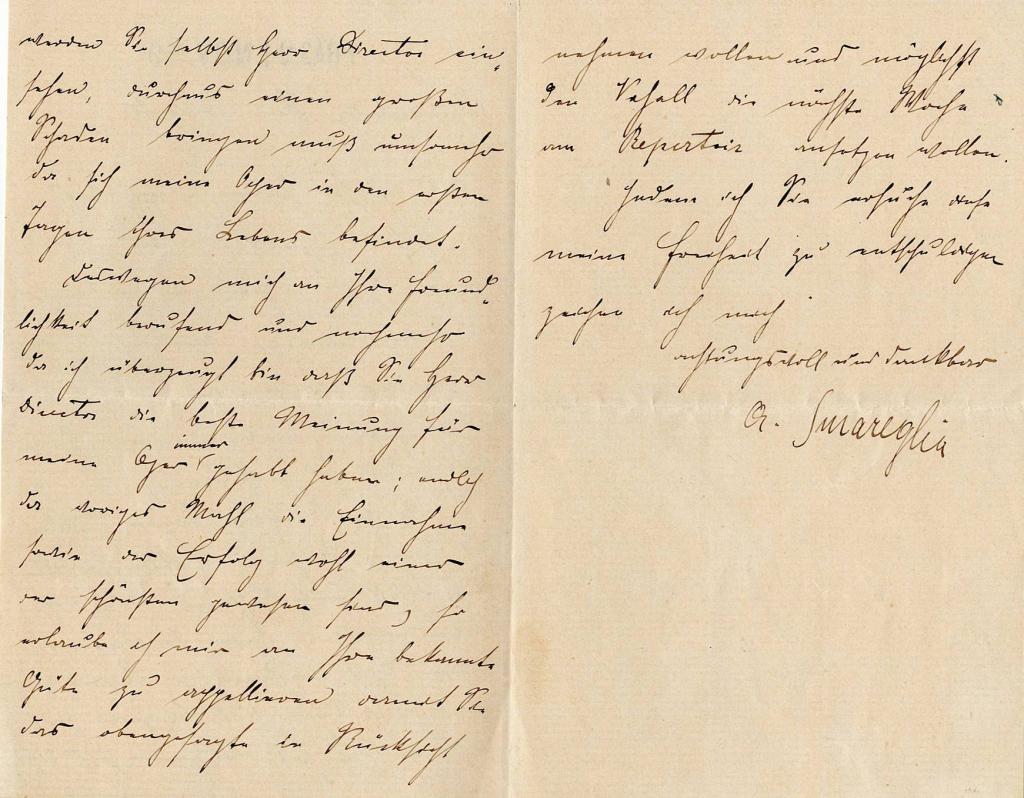 werden Sie selbst Herr Director ein-
sehen, durchaus einen großen
Schaden bringen muß umsomehr
da sich meine Oper in den ersten
Tagen ihres Lebens befindet.
Deswegen mich an Ihre Freund-
lichkeit berufend und nochmehr
da ich überzeugt bin daß Sie Herr
Director die beste Meinung für
meine Oper immer gehabt haben; endlich
da voriges Mahl die Einnahme
sowie der Erfolg wohl einer
der schönsten gewesen sind, so
erlaube ich mir an Ihre bekannte
Güte zu appellieren damit Sie
das obengesagte in Rücksicht
nehmen wollen und möglichst
den Vasall die nächste Woche
am Repertoir ansetzen wollen.
Indem ich Sie ersuche diese
meine Freiheit zu entschuldigen
zeichne ich mich
achtungsvoll und dankbar
A. Smareglia